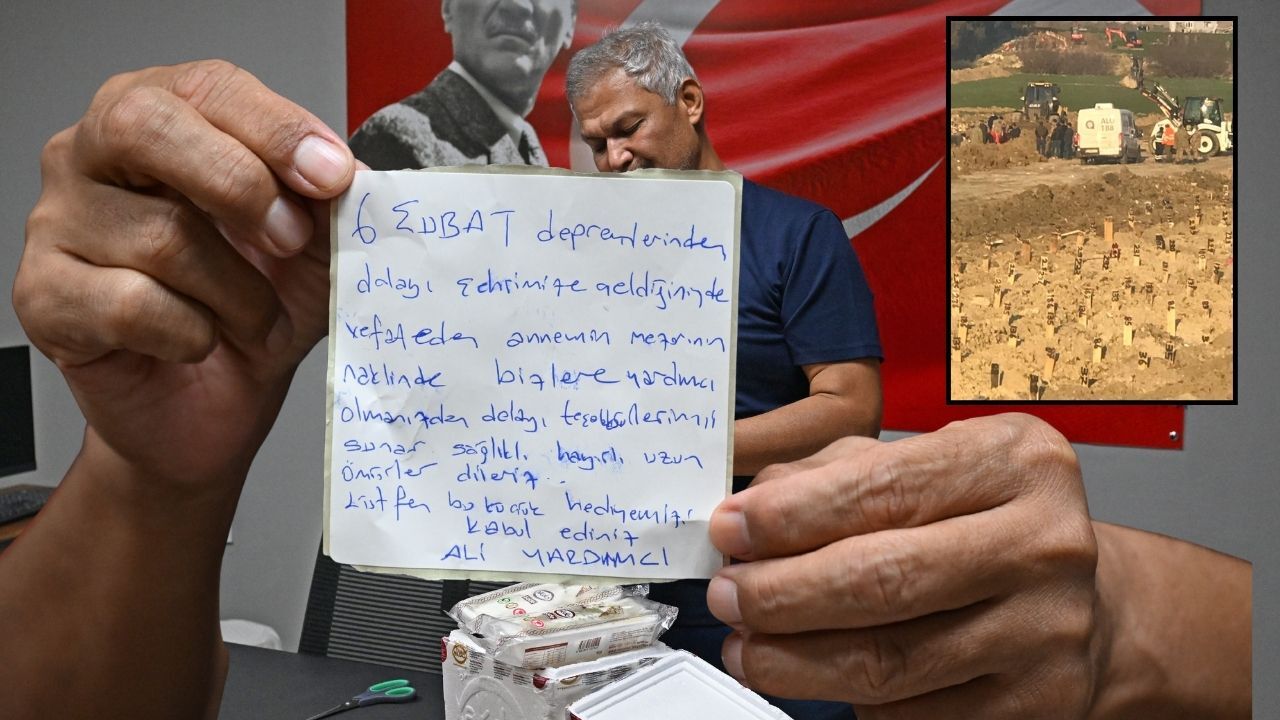 6 ŞUBAT depremlerinden
dolayı şehrimize geldiğinizde
vefat eden annemin mezarının
naklinde bizlere yardımcı
olmanızdan dolayı teşekkürlerimizi
sunar sağlıklı hayırlı uzun
ömürler dileriz..
Lütfen bu küçük hediyemizi
kabul ediniz
ALİ YARDIMCI
ALO
188